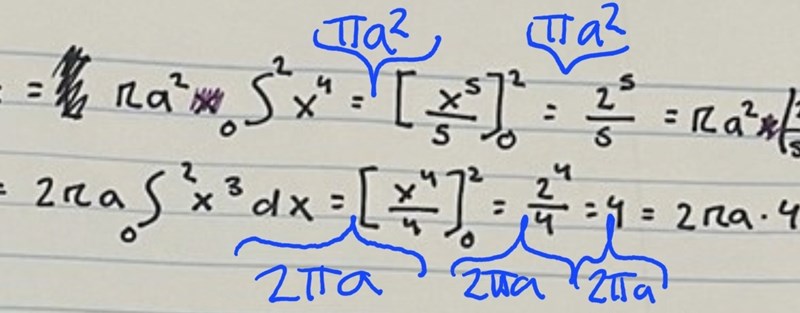 πa² πa²
= πa² ₀∫² x⁴ = [x⁵/5]₀² = 2⁵/5 = πa²
= 2πa ₀∫² x³ dx = [x⁴/4]₀² = 2⁴/4 = 4 = 2πa · 4
2πa 2πa 2πa